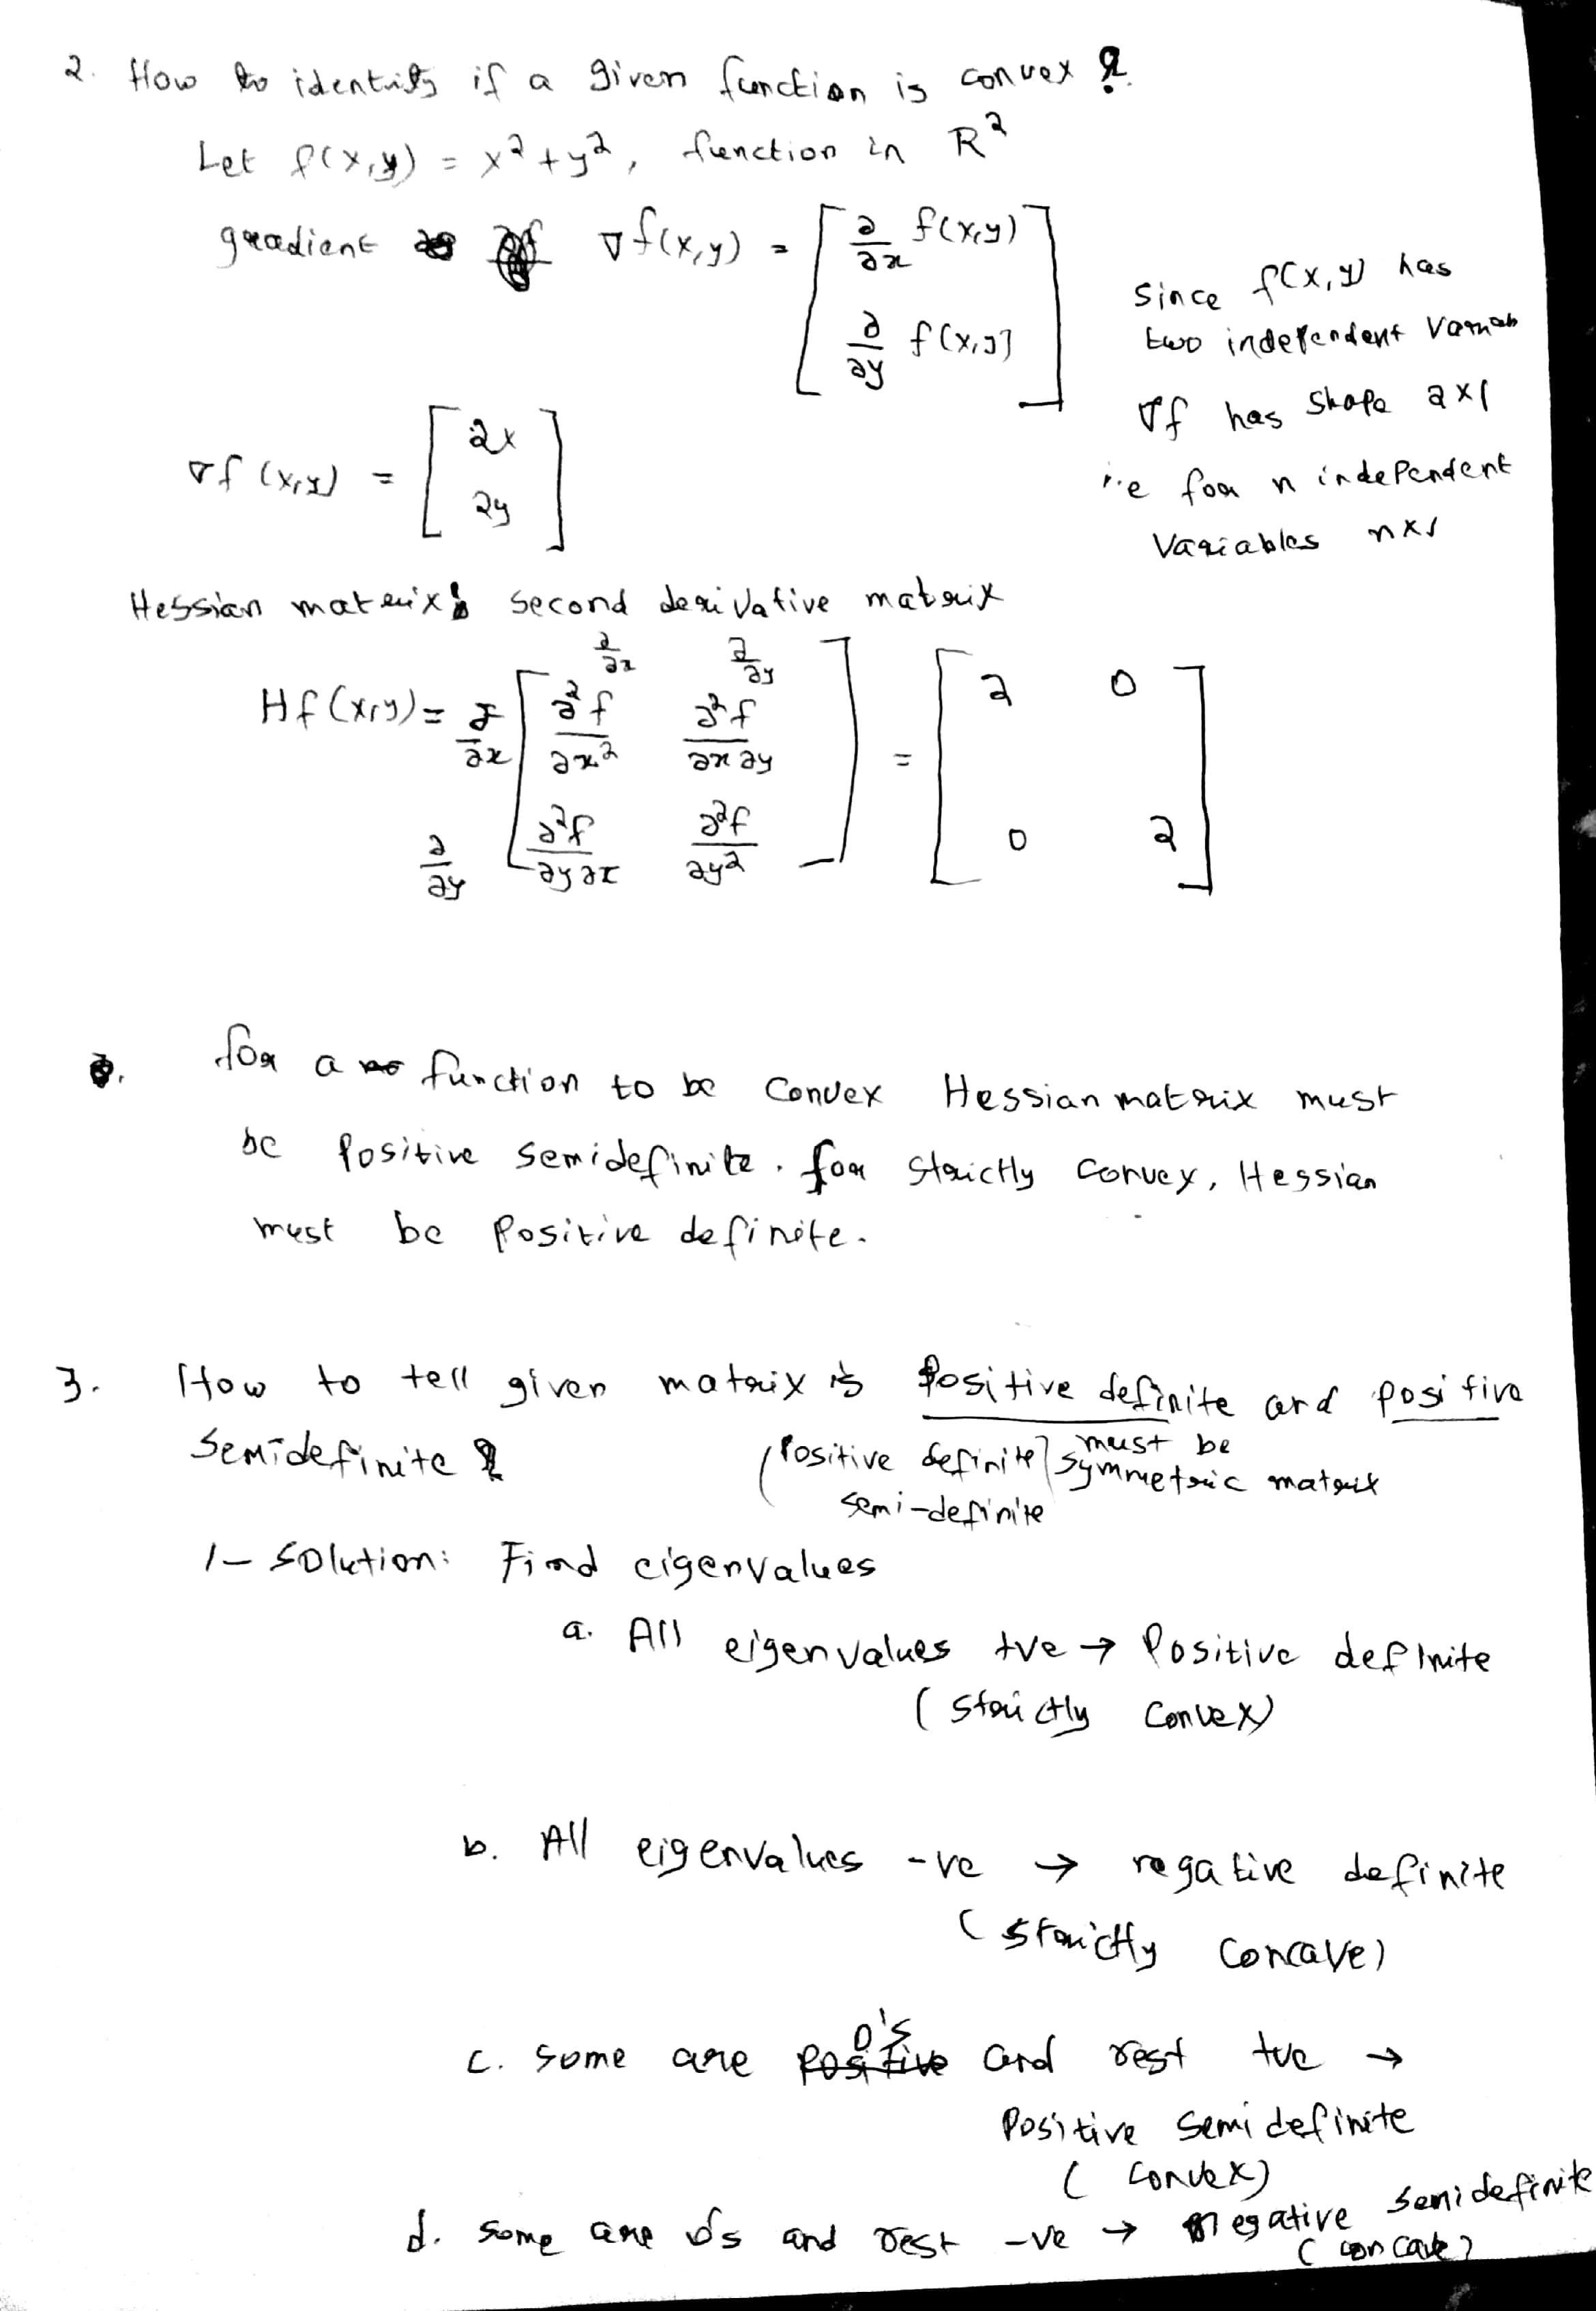 2. How to identify if a given function is convex ?
Let f(x,y) = x² + y², function in R²
gradient ∇f(x,y) = [ ∂/∂x f(x,y)
∂/∂y f(x,y) ]
Since f(x,y) has
two independent
∇f has shape 2x1
i.e for n independent
Variables nx1
∇f(x,y) = [ 2x
2y ]
Hessian matrix: second derivative matrix
∂/∂x ∂/∂y
Hf(x,y) = ∂/∂x [ ∂²f/∂x² ∂²f/∂x∂y ] = [ 2 0
∂/∂y ∂²f/∂y∂x ∂²f/∂y² 0 2 ]
for a function to be convex Hessian matrix must
be positive semidefinite. for strictly convex, Hessian
must be positive definite.
3. How to tell given matrix is positive definite and positive
semidefinite ?
(Positive definite] must be
semi-definite symmetric matrix
1- Solution: Find eigenvalues
a. All eigenvalues +ve → Positive definite
(strictly convex)
b. All eigenvalues -ve → negative definite
(strictly concave)
c. some are 0's and rest +ve →
Positive semidefinite
(convex)
d. some are 0's and rest -ve → negative semidefinite
(concave)